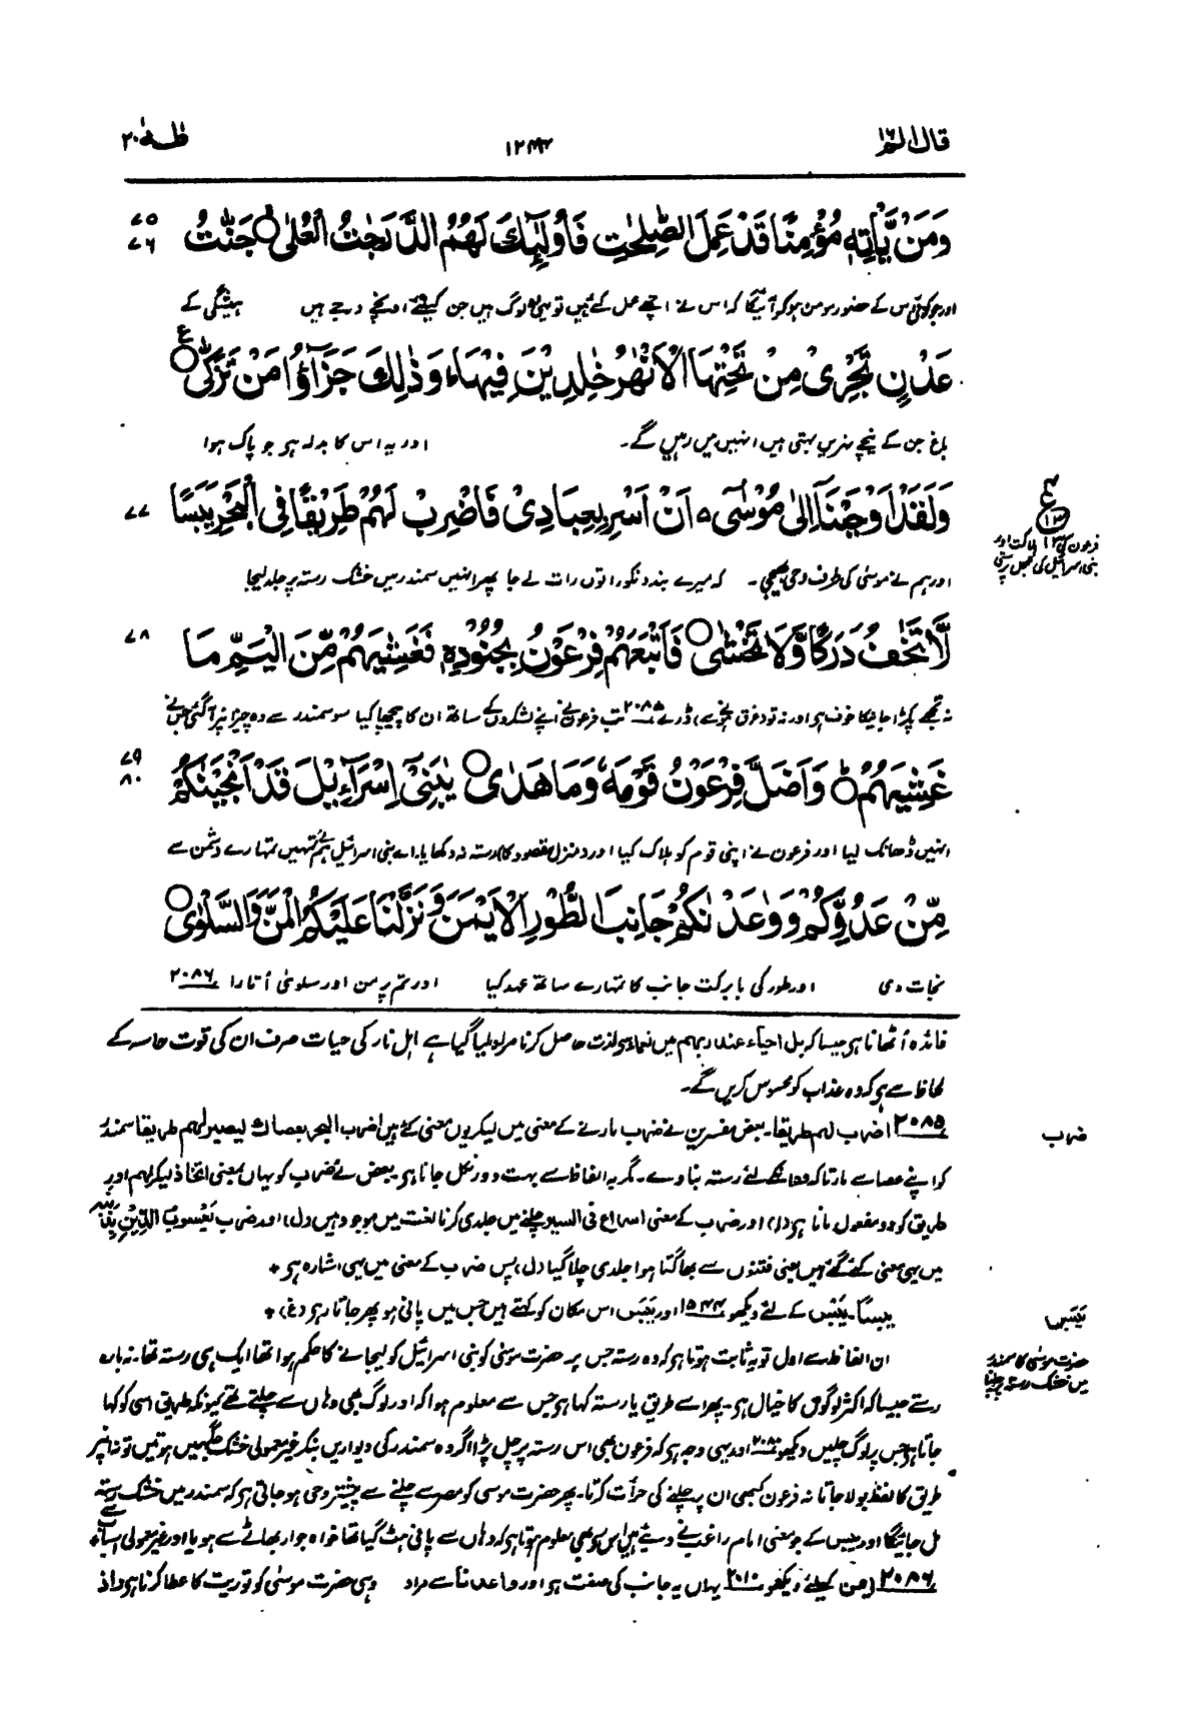 قال الم ١٦
١٢٤٣
طٰهٰ ٢٠
وَمَنْ يَّأْتِهٖ مُؤْمِنًا قَدْ عَمِلَ الصّٰلِحٰتِ فَأُولٰٓئِكَ لَهُمُ الدَّرَجٰتُ الْعُلٰى ○ جَنّٰتُ
٧٥
٧٦
اور جو کوئی اس کے حضور مومن ہو کر آئیگا کہ اس نے اچھے عمل کئے ہیں تو یہی لوگ ہیں جن کیلئے اونچے درجے ہیں ہمیشگی کے
عَدْنٍ تَجْرِیْ مِنْ تَحْتِهَا الْاَنْهٰرُ خٰلِدِیْنَ فِیْهَا ؕ وَذٰلِكَ جَزٰٓؤُا مَنْ تَزَكّٰی ○ ع
باغ جن کے نیچے نہریں بہتی ہیں انہیں میں رہیں گے۔ اور یہ اس کا بدلہ ہو جو پاک ہوا
وَلَقَدْ اَوْحَیْنَآ اِلٰی مُوْسٰٓی ۙ اَنْ اَسْرِ بِعِبَادِیْ فَاضْرِبْ لَهُمْ طَرِیْقًا فِی الْبَحْرِ یَبَسًا
٧٧
ع
١٣
فرعون کی ہلاکت اور
بنی اسرائیل کی پرستی
اور ہم نے موسٰی کی طرف وحی بھیجی۔ کہ میرے بندونکو راتوں رات لے جا پھر انہیں سمندر میں خشک رستہ پر جلد لیجا
لَّا تَخٰفُ دَرَكًا وَّلَا تَخْشٰی ○ فَاَتْبَعَهُمْ فِرْعَوْنُ بِجُنُوْدِهٖ فَغَشِیَهُمْ مِّنَ الْیَمِّ مَا
٧٨
نہ تجھے پکڑا جانیکا خوف ہو اور نہ تو غرق ہونے سے ڈرے ٢٠٨٥ تب فرعون نے اپنے لشکروں کے ساتھ ان کا پیچھا کیا سو سمندر سے وہ چیز انپر آگئی جس نے
غَشِیَهُمْ ○ وَاَضَلَّ فِرْعَوْنُ قَوْمَهٗ وَمَا هَدٰی ○ یٰبَنِیْٓ اِسْرَآءِیْلَ قَدْ اَنْجَیْنٰكُمْ
٧٩
٨٠
انہیں ڈھانک لیا اور فرعون نے اپنی قوم کو ہلاک کیا اور منزل مقصود کا رستہ نہ دکھایا۔ اے بنی اسرائیل ہم نے تمہیں تمہارے دشمن سے
مِّنْ عَدُوِّكُمْ وَوٰعَدْنٰكُمْ جَانِبَ الطُّوْرِ الْاَیْمَنَ وَنَزَّلْنَا عَلَیْكُمُ الْمَنَّ وَالسَّلْوٰی ○
نجات دی اور طور کی بابرکت جانب کا تمہارے ساتھ عہد کیا اور تم پر من اور سلوٰی اُتارا ٢٠٨٦
فائدہ اُٹھانا ہو جیسا کہ بل احیاء عند ربھم میں لذت حاصل کرنا مراد لیا گیا ہے اہل نار کی حیات صرف ان کی قوت حاسہ کے
لحاظ سے ہو کہ وہ عذاب کو محسوس کریں گے۔
٢٠٨٥ اضرب لھم طریقا۔ بعض مفسرین نے ضرب مارنے کے معنی میں لیکر یوں معنی کئے ہیں اضرب البحر بعصاك لیصیر لھم طریقا سمندر
ضرب
کو اپنے عصا سے مارتا کہ وہ انکے لئے رستہ بنادے۔ مگر یہ الفاظ سے بہت دور نکل جانا ہو بعض نے ضرب کو یہاں بمعنی اتخاذ لیکر لھم اور
طریق کو دو مفعول مانا ہو (ا) اور ضرب کے معنی اسراع فی السیر چلنے میں جلدی کرنا لغت میں موجود ہیں (ل) اور ضرب یعسوب الدین بذنبه
میں یہی معنی کئے گئے ہیں یعنی فتنوں سے بھاگتا ہوا جلدی چلا گیا (ل) پس ضرب کے معنی میں یہی اشارہ ہو ٭
یبسًا۔ یَبَس کے لئے دیکھو ١٥٤٤ اور یَبَس اس مکان کو کہتے ہیں جس میں پانی ہو پھر جاتا رہو (غ) ٭
یَبَس
ان الفاظ سے اول تو یہ ثابت ہوتا ہو کہ وہ رستہ جس پر حضرت موسٰی کو بنی اسرائیل کو لیجانے کا حکم ہوا تھا ایک ہی رستہ تھا۔ نہ بارہ
حضرت موسٰی کا سمندر
میں خشک رستہ پر چلنا
رستے جیسا کہ اکثر لوگوں کا خیال ہو۔ پھر اسے طریق یا رستہ کہا ہو جس سے معلوم ہوا کہ اور لوگ بھی وہاں سے چلتے تھے کیونکہ طریق اسی کو کہا
جاتا ہو جس پر لوگ چلیں دیکھو اور یہی وجہ ہو کہ فرعون بھی اس رستہ پر چل پڑا اگر وہ سمندر کی دیواریں بنکر غیر معمولی خشک جگہیں ہوتیں تو نہ انپر
طریق کا لفظ بولا جاتا نہ فرعون کبھی ان پر چلنے کی جرأت کرتا۔ پھر حضرت موسٰی کو مصر سے چلنے سے پیشتر وحی ہو جاتی ہو کہ سمندر میں خشک رستہ
مل جائیگا اور یبس کے جو معنی امام راغب نے دیئے ہیں اس سے بھی معلوم ہوتا ہو کہ وہاں سے پانی ہٹ گیا تھا خواہ جوار بھاٹے سے ہو یا اور غیر معمولی اسباب سے ٭
٢٠٨٦ ایمن کیلئے دیکھو ٢٠١٠ یہاں یہ جانب کی صفت ہو اور واعدنا سے مراد وہی حضرت موسٰی کو توریت کا عطا کرنا ہو واذ